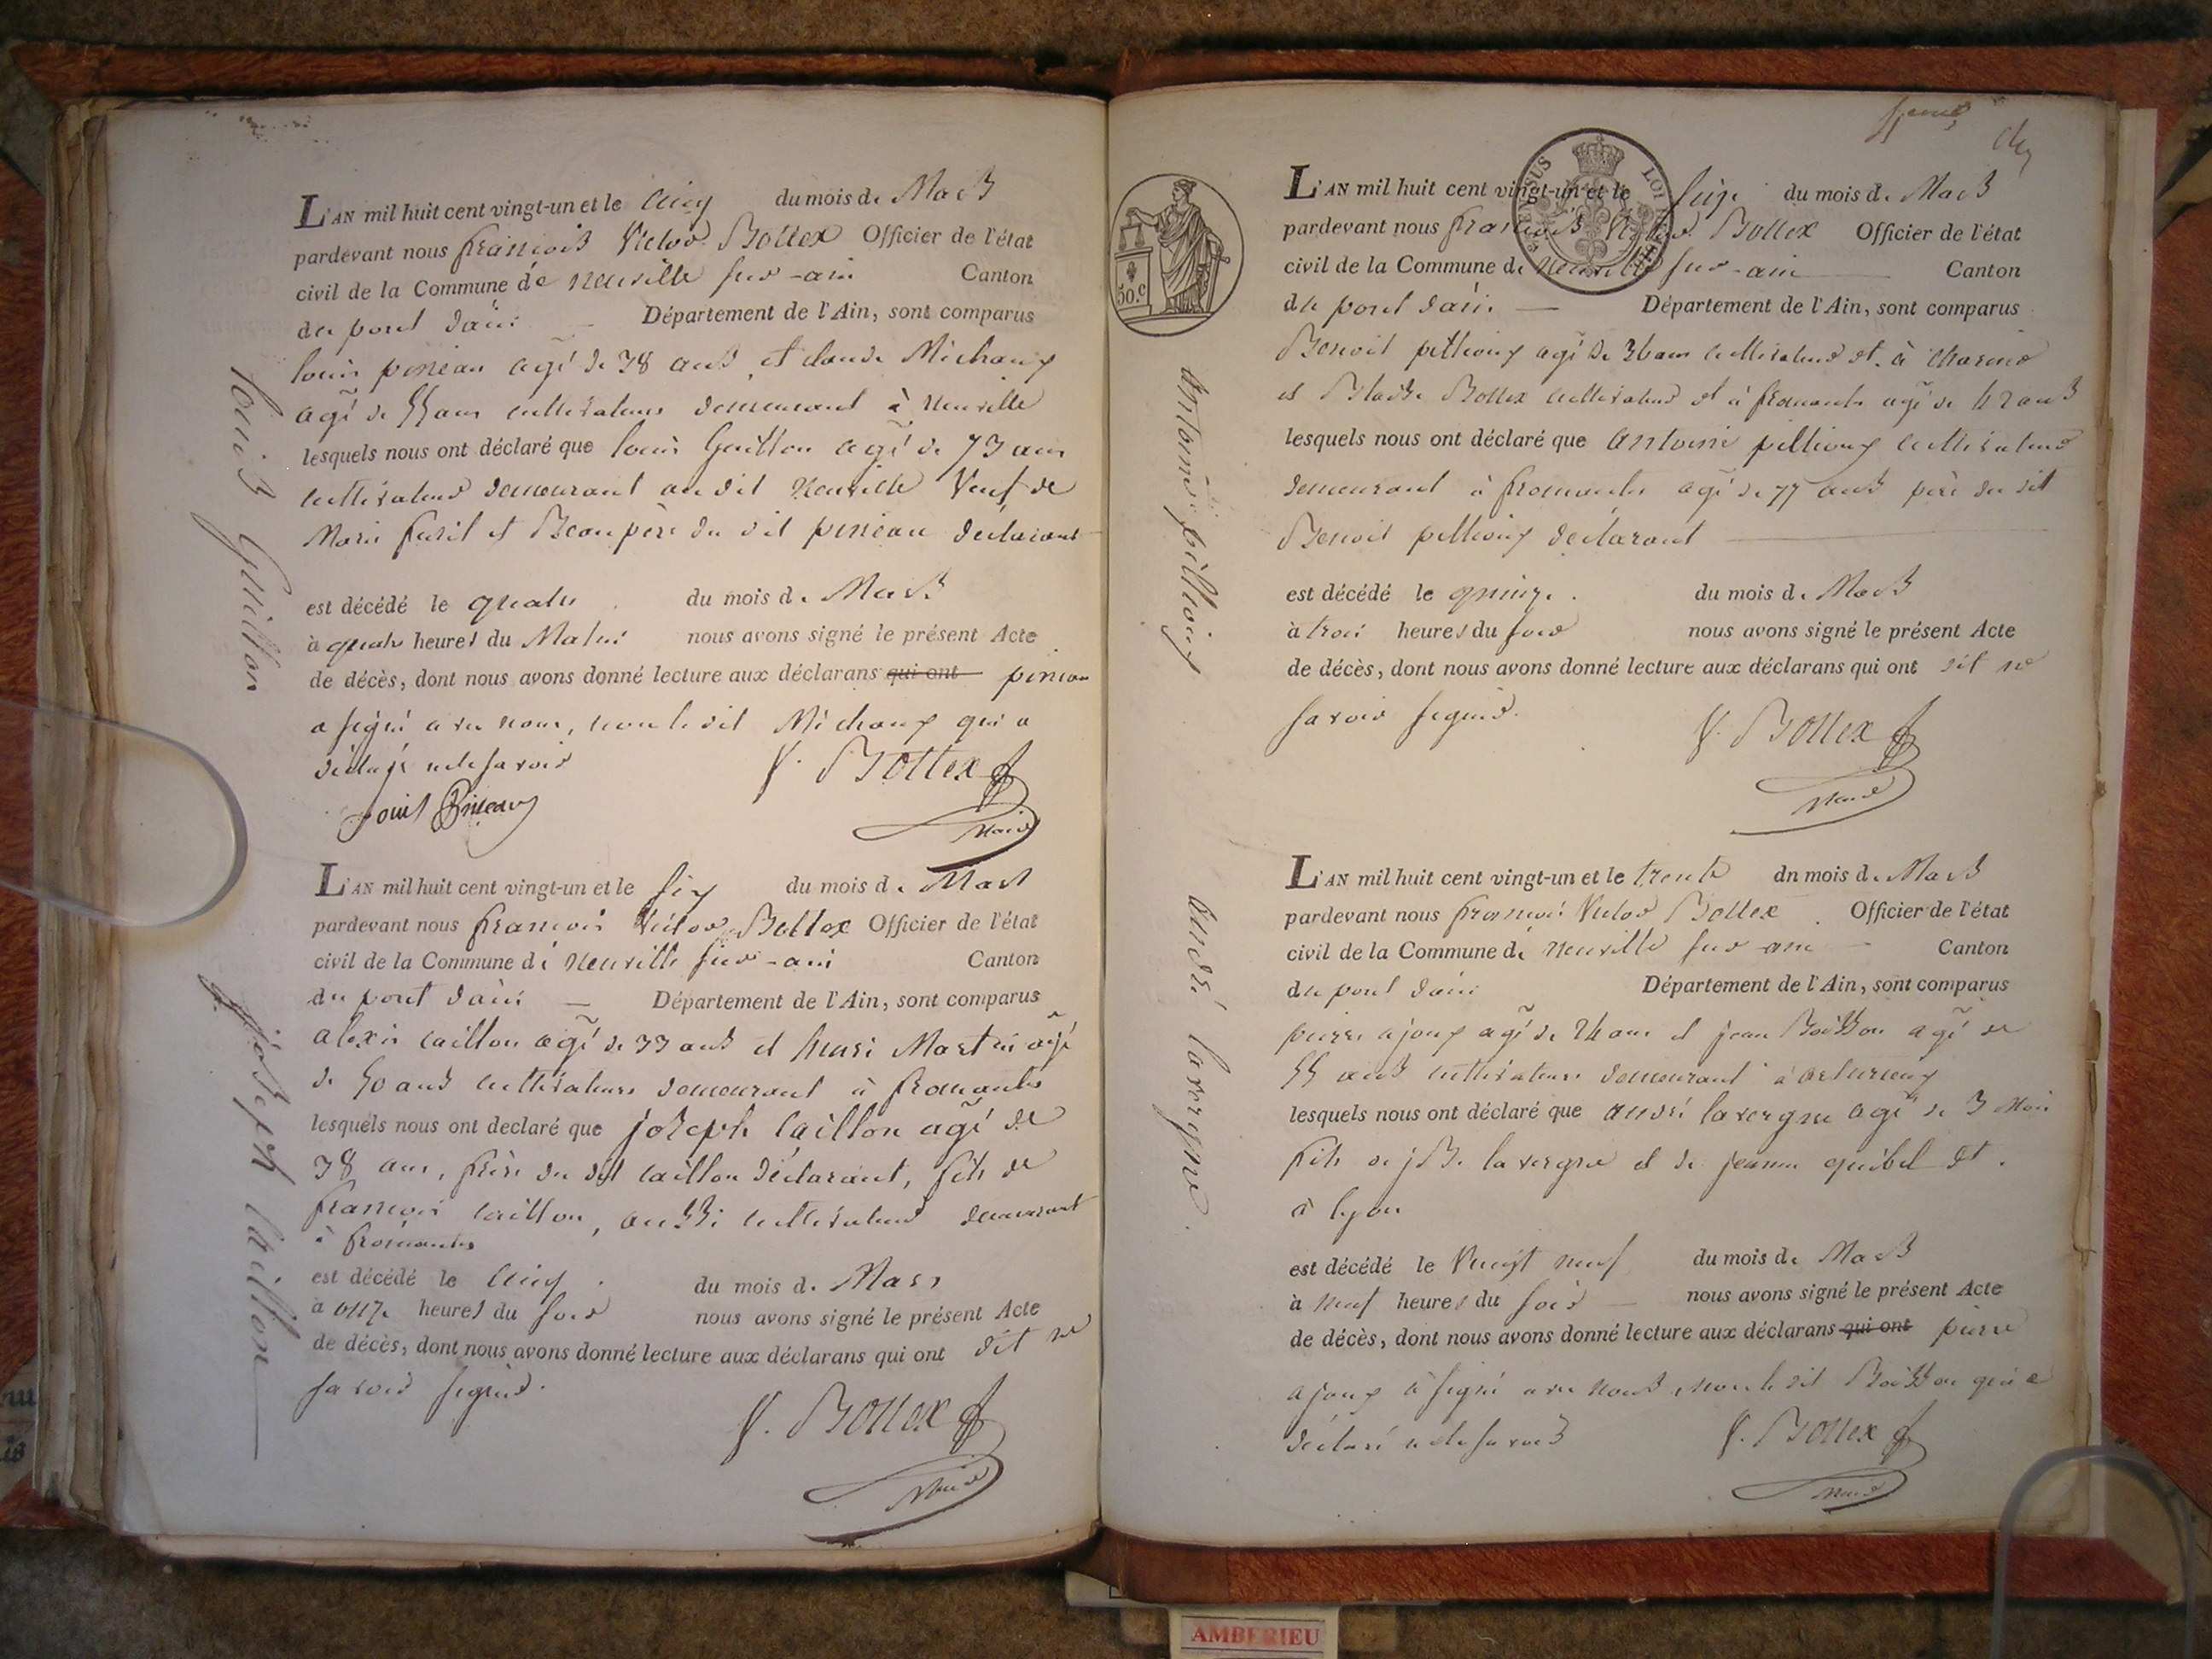 Louis Guillon
L'AN mil huit cent vingt-un et le cinq du mois de Mars
pardevant nous françois Victor Bottex Officier de l'état
civil de la Commune de neuville sur-ain Canton
du pont dain — Département de l'Ain, sont comparus
louis pineau agé de 38 ans et claude Michaux
agé de 55 ans cultivateurs demeurant à Neuville
lesquels nous ont déclaré que louis Guillon agé de 73 ans
cultivateur demeurant au dit Neuville Veuf de
Marie et Beaupère du dit pineau déclarant
est décédé le quatre du mois de Mars
à quatre heures du Matin nous avons signé le présent Acte
de décès, dont nous avons donné lecture aux déclarans qui ont pineau
a signé avec nous, non le dit Michaux qui a
déclaré ne le savoir
V. Bottex
Louis Pineau
Maire
Joseph Caillon
L'AN mil huit cent vingt-un et le six du mois de Mars
pardevant nous françois Victor Bottex Officier de l'état
civil de la Commune de neuville sur-ain Canton
du pont dain — Département de l'Ain, sont comparus
alexis caillon agé de 33 ans et Martin agé
de 50 ans cultivateurs demeurant à fromente
lesquels nous ont declaré que joseph Caillon agé de
38 ans, frère du dit caillon déclarant, fils de
françois caillon, aussi cultivateur demeurant
à fromente
est décédé le cinq du mois de Mars
à onze heures du soir nous avons signé le présent Acte
de décès, dont nous avons donné lecture aux déclarans qui ont dit ne
savoir signer.
V. Bottex
Maire
VERSUS LOI
50.c
antoine pillioux
L'AN mil huit cent vingt-un et le seize du mois de Mars
pardevant nous françois Victor Bottex Officier de l'état
civil de la Commune de neuville sur-ain Canton
du pont dain — Département de l'Ain, sont comparus
Benoit pillioux agé de 36 ans cultivateur dt. à
et Bottex cultivateur dt à fromente agé de 42 ans
lesquels nous ont déclaré que antoine pillioux cultivateur
demeurant à fromente agé de 77 ans père du dit
Benoit pillioux déclarant
est décédé le quinze du mois de Mars
à trois heures du soir nous avons signé le présent Acte
de décès, dont nous avons donné lecture aux déclarans qui ont dit ne
savoir signer.
V. Bottex
Maire
andré lavergne.
L'AN mil huit cent vingt-un et le trente dn mois de Mars
pardevant nous françois Victor Bottex Officier de l'état
civil de la Commune de neuville sur-ain Canton
du pont dain Département de l'Ain, sont comparus
pierre ajoux agé de 24 ans et jean Boisson agé de
55 ans cultivateurs demeurant à
lesquels nous ont déclaré que andré lavergne agé de 3 Mois
fils de jB. lavergne et de jeanne quibel dt.
à lyon
est décédé le Vingt neuf du mois de Mars
à neuf heures du soir — nous avons signé le présent Acte
de décès, dont nous avons donné lecture aux déclarans qui ont pierre
ajoux a signé avec nous, non le dit Boisson qui a
déclaré ne le savoir
V. Bottex
Maire
AMBERIEU